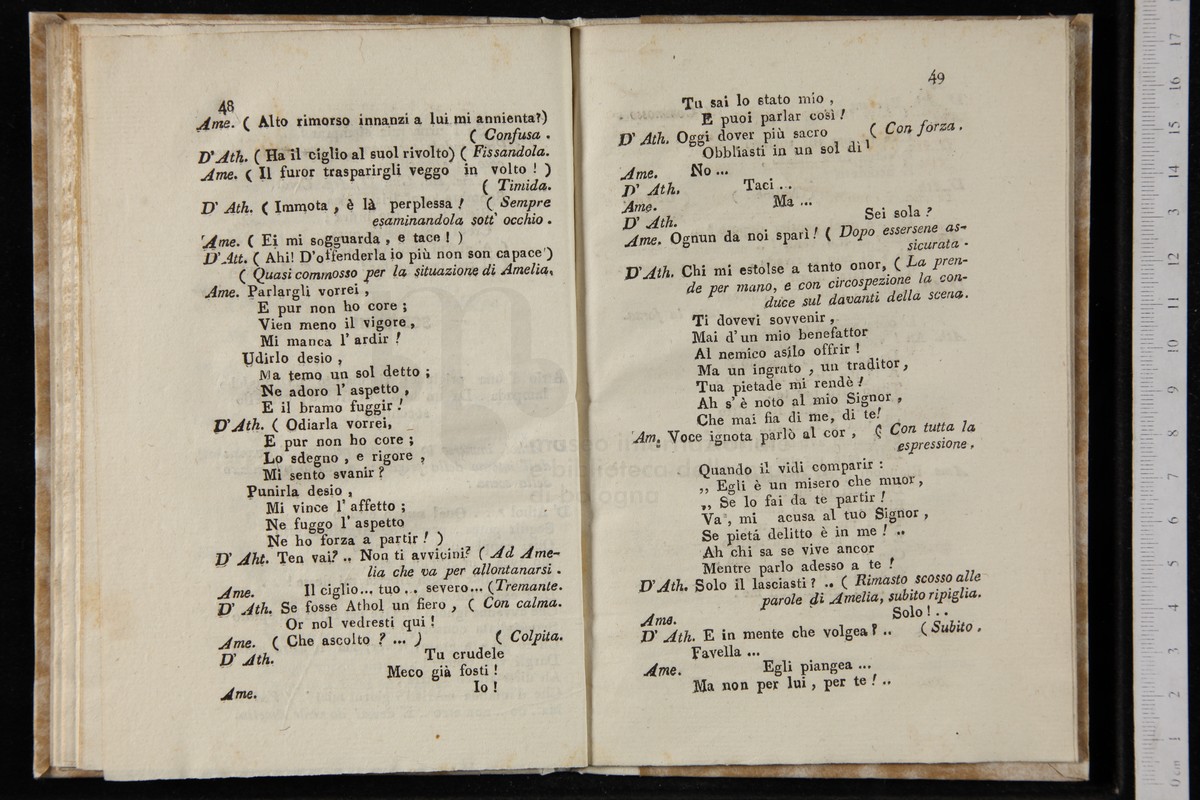 48
Ame. ( Alto rimorso innanzi a lui mi annienta?)
( Confusa .
D'Ath. ( Ha il ciglio al suol rivolto) ( Fissandola.
Ame. ( Il furor trasparirgli veggo in volto ! )
( Timida.
D' Ath. ( Immota , è là perplessa ! ( Sempre
esaminandola sott' occhio .
Ame. ( Ei mi sogguarda , e tace ! )
D'Att. ( Ahi! D'offenderla io più non son capace')
( Quasi commosso per la situazione di Amelia,
Ame. Parlargli vorrei ,
E pur non ho core ;
Vien meno il vigore ,
Mi manca l' ardir !
Udirlo desio ,
Ma temo un sol detto ;
Ne adoro l' aspetto ,
E il bramo fuggir !
D'Ath. ( Odiarla vorrei,
E pur non ho core ;
Lo sdegno , e rigore ,
Mi sento svanir ?
Punirla desio ,
Mi vince l' affetto ;
Ne fuggo l' aspetto
Ne ho forza a partir ! )
D' Aht. Ten vai? .. Non ti avvicini? ( Ad Ame-
lia che va per allontanarsi .
Ame. Il ciglio... tuo . . severo... (Tremante.
D' Ath. Se fosse Athol un fiero , ( Con calma.
Or nol vedresti qui !
Ame. ( Che ascolto ? ... ) ( Colpita.
D' Ath. Tu crudele
Meco già fosti !
Ame. Io !
49
Tu sai lo stato mio ,
E puoi parlar così !
D' Ath. Oggi dover più sacro ( Con forza .
Obbliasti in un sol dì !
Ame. No ...
D' Ath. Taci . .
Ame. Ma ...
D' Ath. Sei sola ?
Ame. Ognun da noi sparì ! ( Dopo essersene as-
sicurata .
D'Ath. Chi mi estolse a tanto onor, ( La pren-
de per mano, e con circospezione la con-
duce sul davanti della scena.
Ti dovevi sovvenir ,
Mai d' un mio benefattor
Al nemico asilo offrir !
Ma un ingrato , un traditor,
Tua pietade mi rendè !
Ah s' è noto al mio Signor ,
Che mai fia di me, di te!
Am. Voce ignota parlò al cor , ( Con tutta la
espressione .
Quando il vidi comparir :
,, Egli è un misero che muor,
,, Se lo fai da te partir !
Va', mi acusa al tuo Signor ,
Se pietà delitto è in me ! ..
Ah chi sa se vive ancor
Mentre parlo adesso a te !
D'Ath. Solo il lasciasti ? .. ( Rimasto scosso alle
parole di Amelia, subito ripiglia.
Ame. Solo ! . .
D' Ath. E in mente che volgea ? .. ( Subito .
Favella ...
Ame. Egli piangea ...
Ma non per lui , per te ! ..